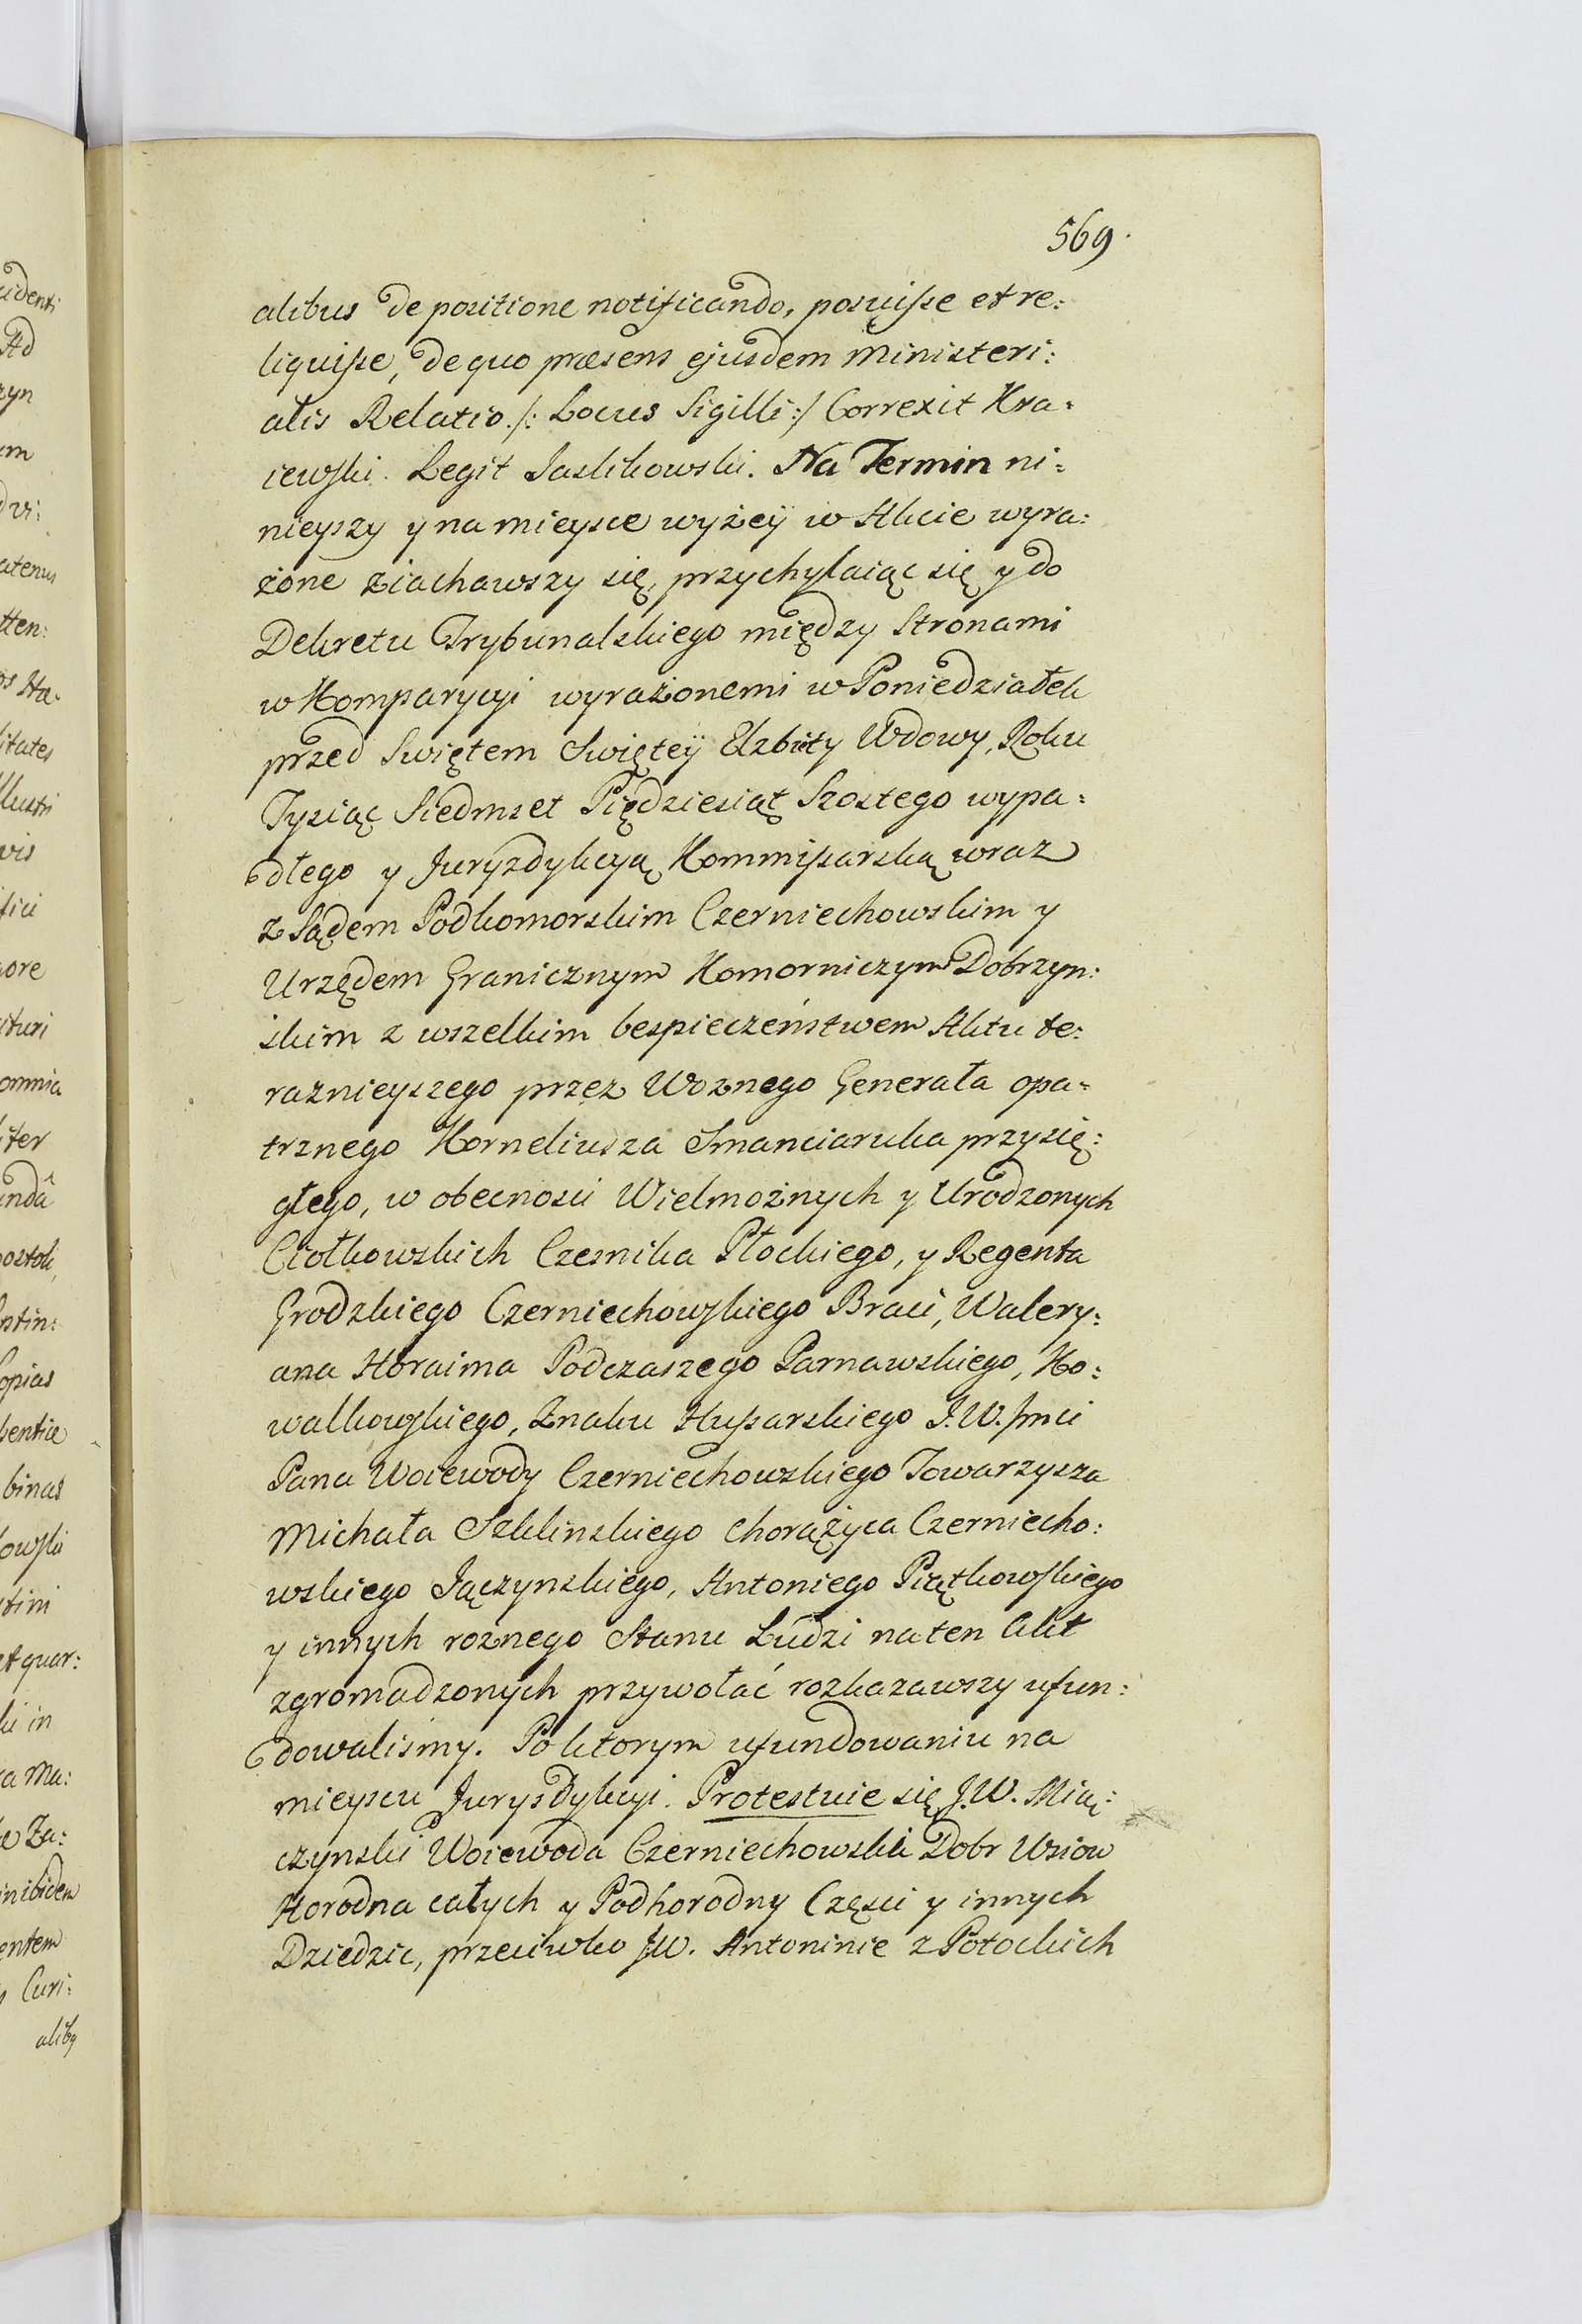 569.
alibus de positione notificando, posuisse et re:
liquisse, de quo præsens ejusdem Ministeri:
alis Relatio /: Locus Sigilli :/ Correxit Kra:
iewski. Legit Jaslikowski. Na Termin ni:
nieyszy y na mieysce wyżeÿ w Akcie wyra:
żone ziachawszy się, przychylaiąc się y do
Dekretu Trybunalskiego między Stronami
w Komparycyi wyrażonemi w Poniedziałek
przed Swiętem Swięteÿ Elzbiety Wdowy, Roku
Tysiąc Siedmset Piędziesiąt Szostego wypa:
dłego y Juryzdykcyą Kommissarską wraz
z Sądem Podkomorskim Czerniechowskim y
Urzędem Granicznym Komorniczym Dobrzyn:
skim z wszelkim bespieczeństwem Aktu te:
raznieyszego przez Woznego Generała opa:
trznego Korneliusza Smanciaruka przysię:
głego, w obecnosci Wielmożnych y Urodzonych
Ciołkowskich Czesnika Płockiego, y Regenta
Grodzkiego Czerniechowskiego Braci, Walery:
ana Horaima Podczaszego Parnawskiego, Ko:
walkowskiego, Znaku Hussarskiego J.W. Jmci
Pana Woiewody Czerniechowskiego Towarzysza
Michała Szklinskiego Chorążyca Czerniecho:
wskiego Jączynskiego, Antoniego Piątkowskiego
y innych rożnego Stanu Ludzi na ten Akt
zgromadzonych przywołać rozkazawszy ufun:
dowalismy. Po ktorym ufundowaniu na
mieyscu Jurysdykcyi. Protestuie się J.W. Mią:
czynski Woiewoda Czerniechowski Dobr Wsiow
Horodna całych y Podhorodny Częsci y innych
Dziedzic, przeciwko JW. Antoninie z Potockich
identi
Ad
zyn
um
atenus
tten:
os Ha:
itates
llustri
vis
fici
ore
ituri
omnia
iter
undâ
ostoli,
opias
sentiæ
binas
owski
tini
et quar:
ki in
ra Ma:
Za:
in ibidem
entem
Curi:
alibq